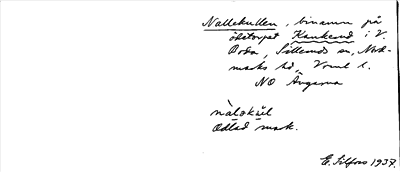 Nallekullen, binamn på
ödetorpet Kankerud i V.
Boda, Sillerud sn, Nord-
marks hd, Vrml l.
NO Ängarna
nàlǝkùl
Odlad mark.
E. Silfors 1937.